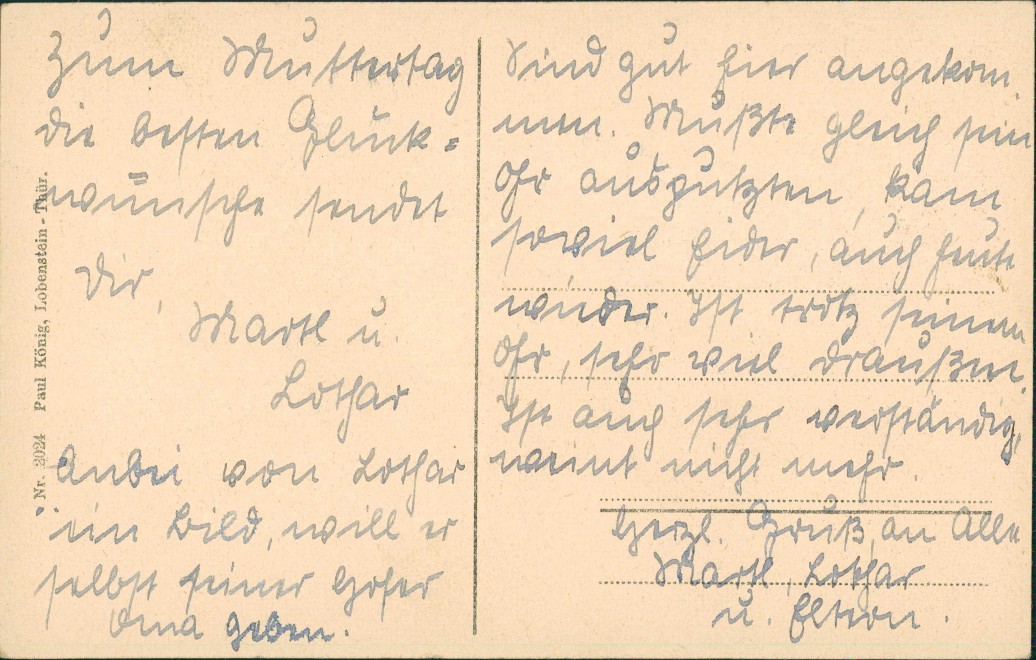 Zum Muttertag
die besten Glück-
wünsche sendet
Dir,
Martl u.
Lothar
Anbei von Lothar
ein Bild, will er
selbst seiner Hofer
Oma geben.
Sind gut hier angekom
men. Mußte gleich sein
Ohr ausputzten, kam
soviel Eider, auch heute
wieder. Ist trotz seinem
Ohr, sehr viel draußen.
Ist auch sehr verständig,
weint nicht mehr.
Herzl. Gruß, an Alle
Martl, Lothar
u. Eltern.
Nr. 2024 Paul König, Lobenstein - Thür.